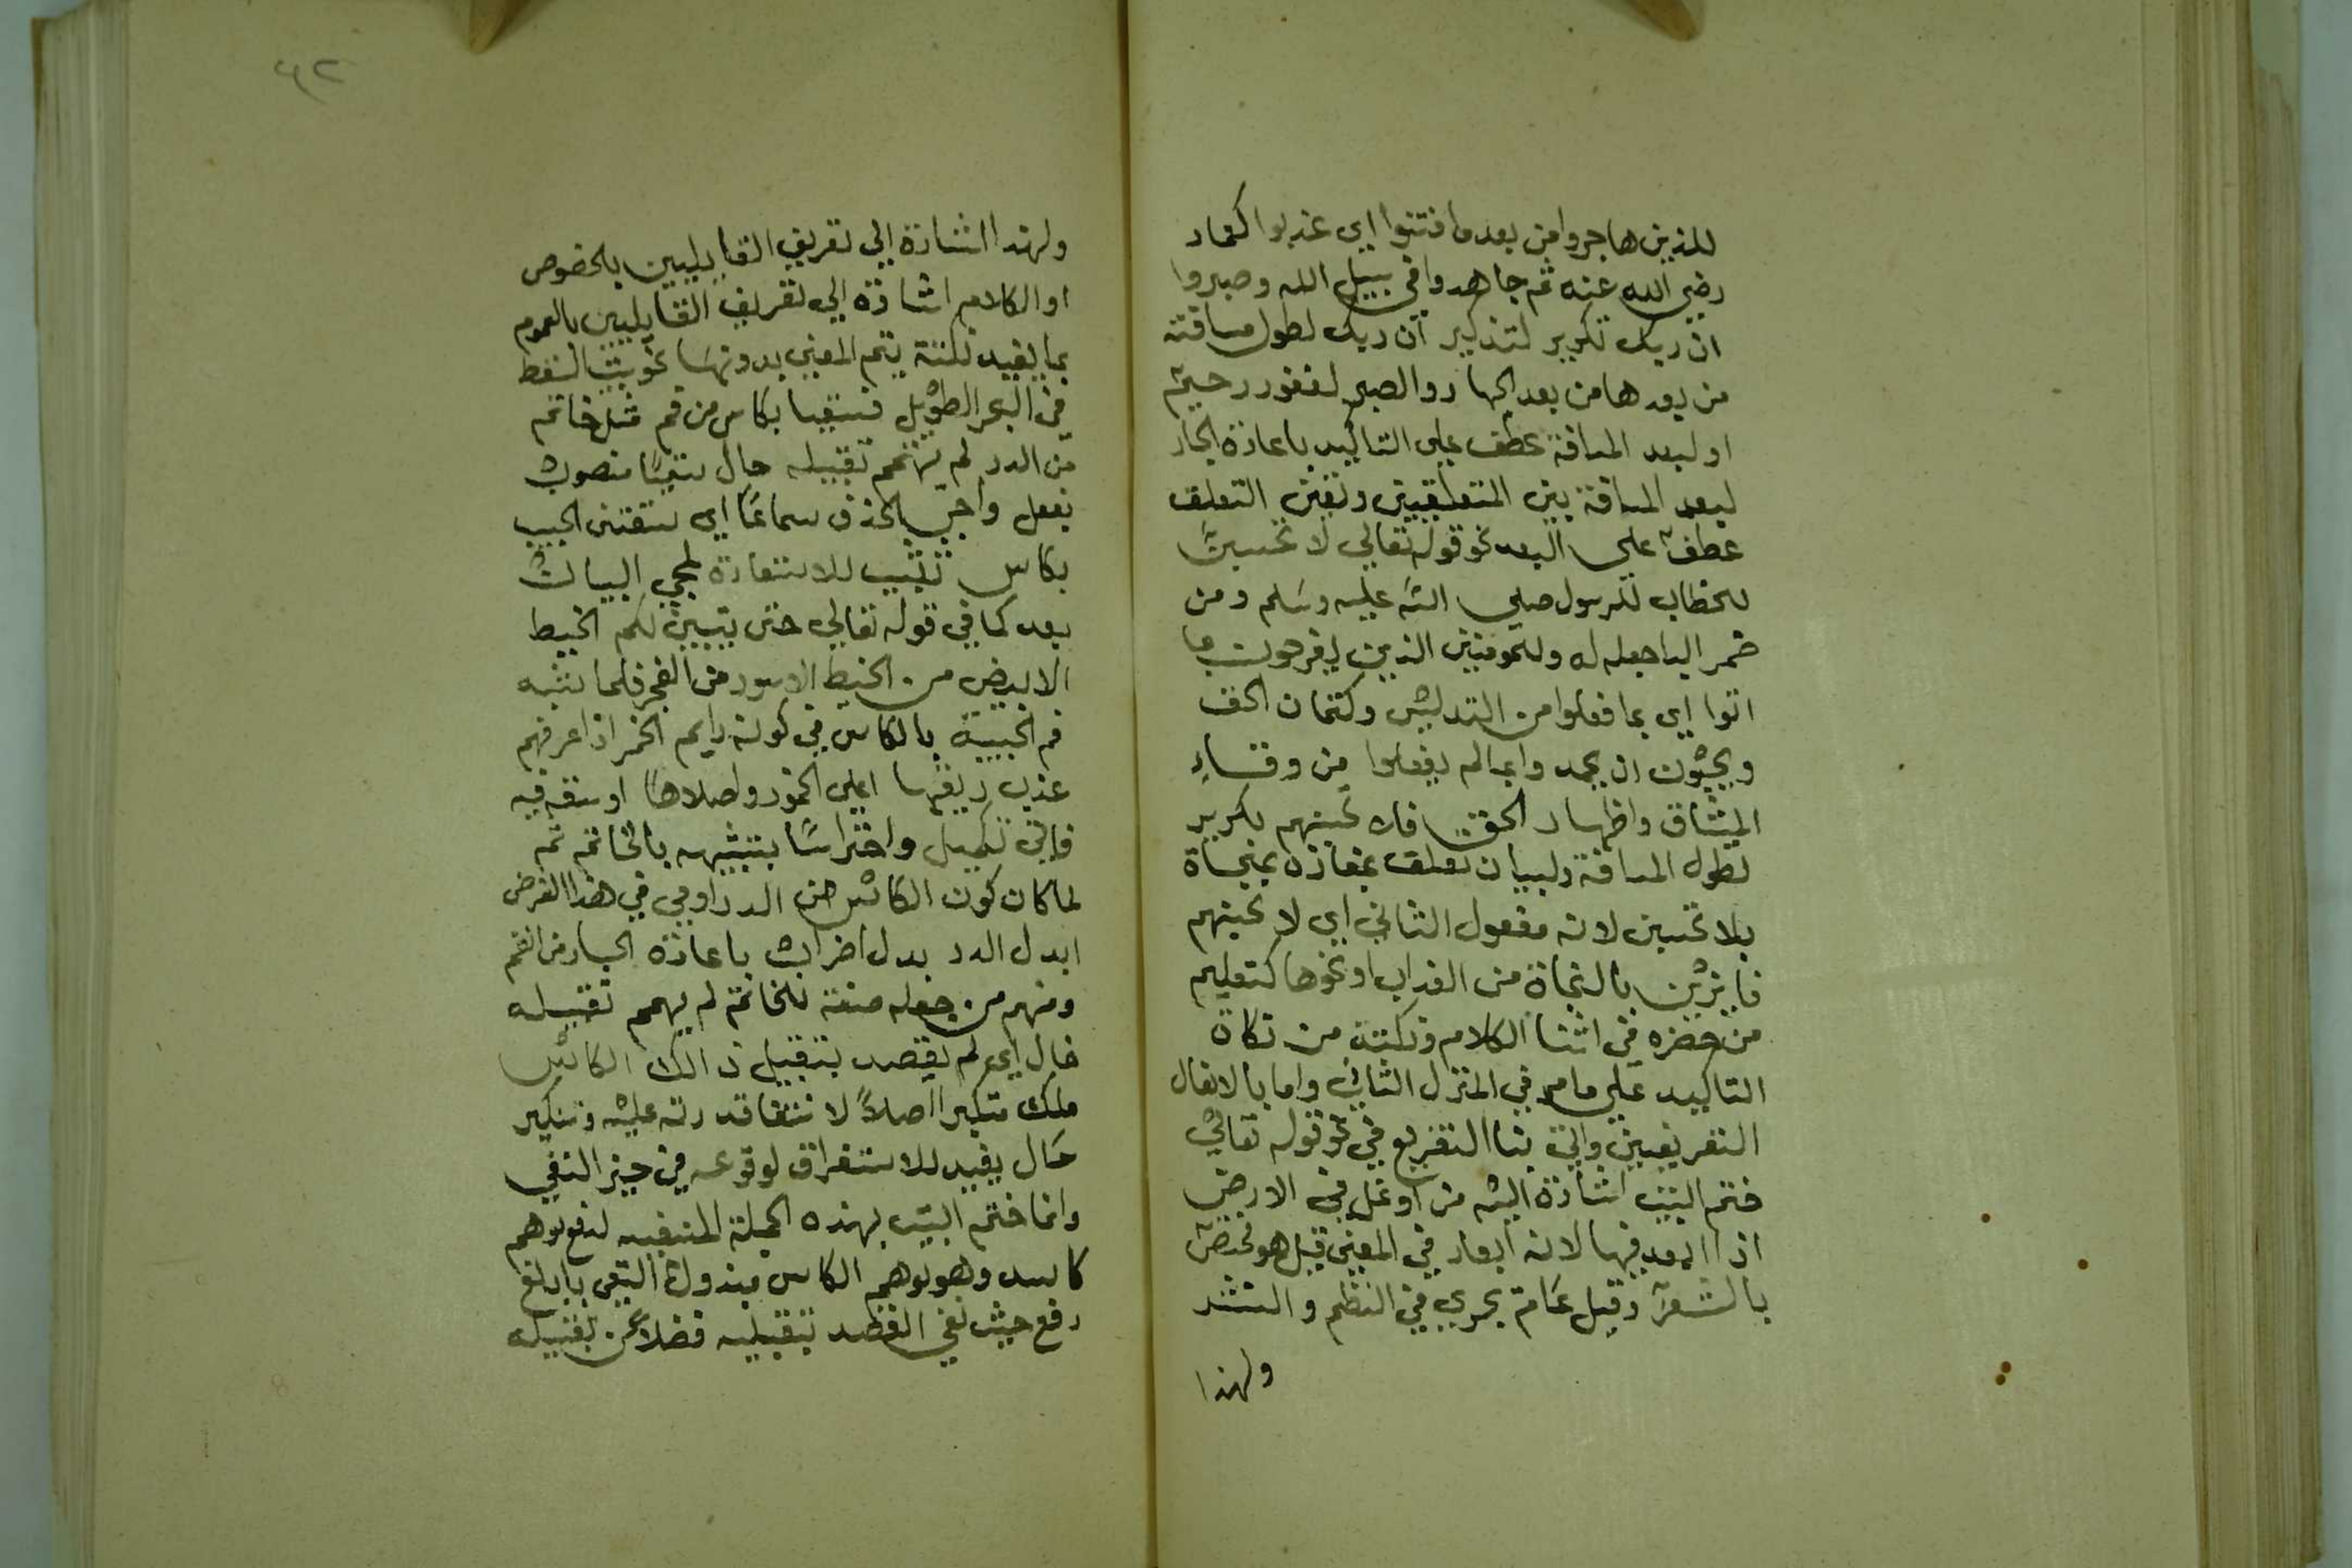 للذين هاجروا من بعد ما فتنوا اي عذبوا كعمار
رضي الله عنه ثم جاهدوا في سبيل الله وصبروا
ان ربك تكرير لتذكير ان ربك لطول مسافته
من بعدها من بعد الجهاد والصبر لغفور رحيم
او لبعد المسافة عطف على التاكيد باعادة الجار
لبعد المسافة بين المتعلقين وتعين التعلق
عطف على البعد نحو قوله تعالي لا تحسبن
الخطاب للرسول صلي الله عليه وسلم ومن
ضم البا جعله له وللمومنين الذين يفرحون بما
اتوا اي بما فعلوا من التدليس وكتمان الحق
ويحبون ان يحمدوا بما لم يفعلوا من وفاء
الميثاق واظهار الحق فلا تحسبنهم تكرير
لطول المسافة ولبيان تعلق بمفازة بمنجاة
بلا تحسبن لانه مفعول الثاني اي لا تحسبنهم
فايزين بالنجاة من العذاب او نحوها كتعليم
من حضره في اثنا الكلام ونكتة من نكاة
التاكيد علي ما مر في المنزل الثاني واما بالايغال
التعريفين واتى بنا التفريع في نحو قوله تعالي
ختم البيت اشارة اليه من اوغل في الارض
اذا ابعد فيها لانه ابعاد في المعني قيل هو مختص
بالشعر وقيل عام يجري في النظم والنثر
ولهذا
٦٢
ولهذا اشارة الي تعريف القايلين بالخصوص
او الكلام اشارة الي تعريف القايلين بالعموم
بما يفيد نكتة يتم المعني بدونها نحو بيت السقط
في البحر الطويل فسقيا بكاس من فم مثل خاتم
من الدر لم يهمم تقبيله خال سقيا منصوب
بفعل واجب الحذف سماعا اي سقتني الحبيب
بكاس للاستعارة لمجي البيان
بعد كما في قوله تعالي حتى يتبين لكم الخيط
الابيض من الخيط الاسود من الفجر فلما شبه
فم الحبيبة بالكاس في كونه دايم الخمر اذا عرفهم
عذب ريقها اعلي الخمور واصلاها او
فاتى تكميل واحتراسا بتشبيهه بالخاتم ثم
لما كان كون الكاس من الدر اوفي في هذا الغرض
ابدل الدر بدل اضراب باعادة الجار من الفم
ومنهم من جعله صفة للخاتم لم يهمم تقبيله
خال اي لم يقصد بتقبيل ذالك الكاس
ملك متكبر اصلا لانتفا قدرته عليه وتنكير
خال يفيد للاستغراق لوقوعه في حيز النفي
وانما ختم البيت بهذه الجملة المنفية لدفع توهم
كاسد وهو توهم الكاس مبذول التقي بابلغ
دفع حيث نفي القصد بتقبيله فضلا عن تقبيله